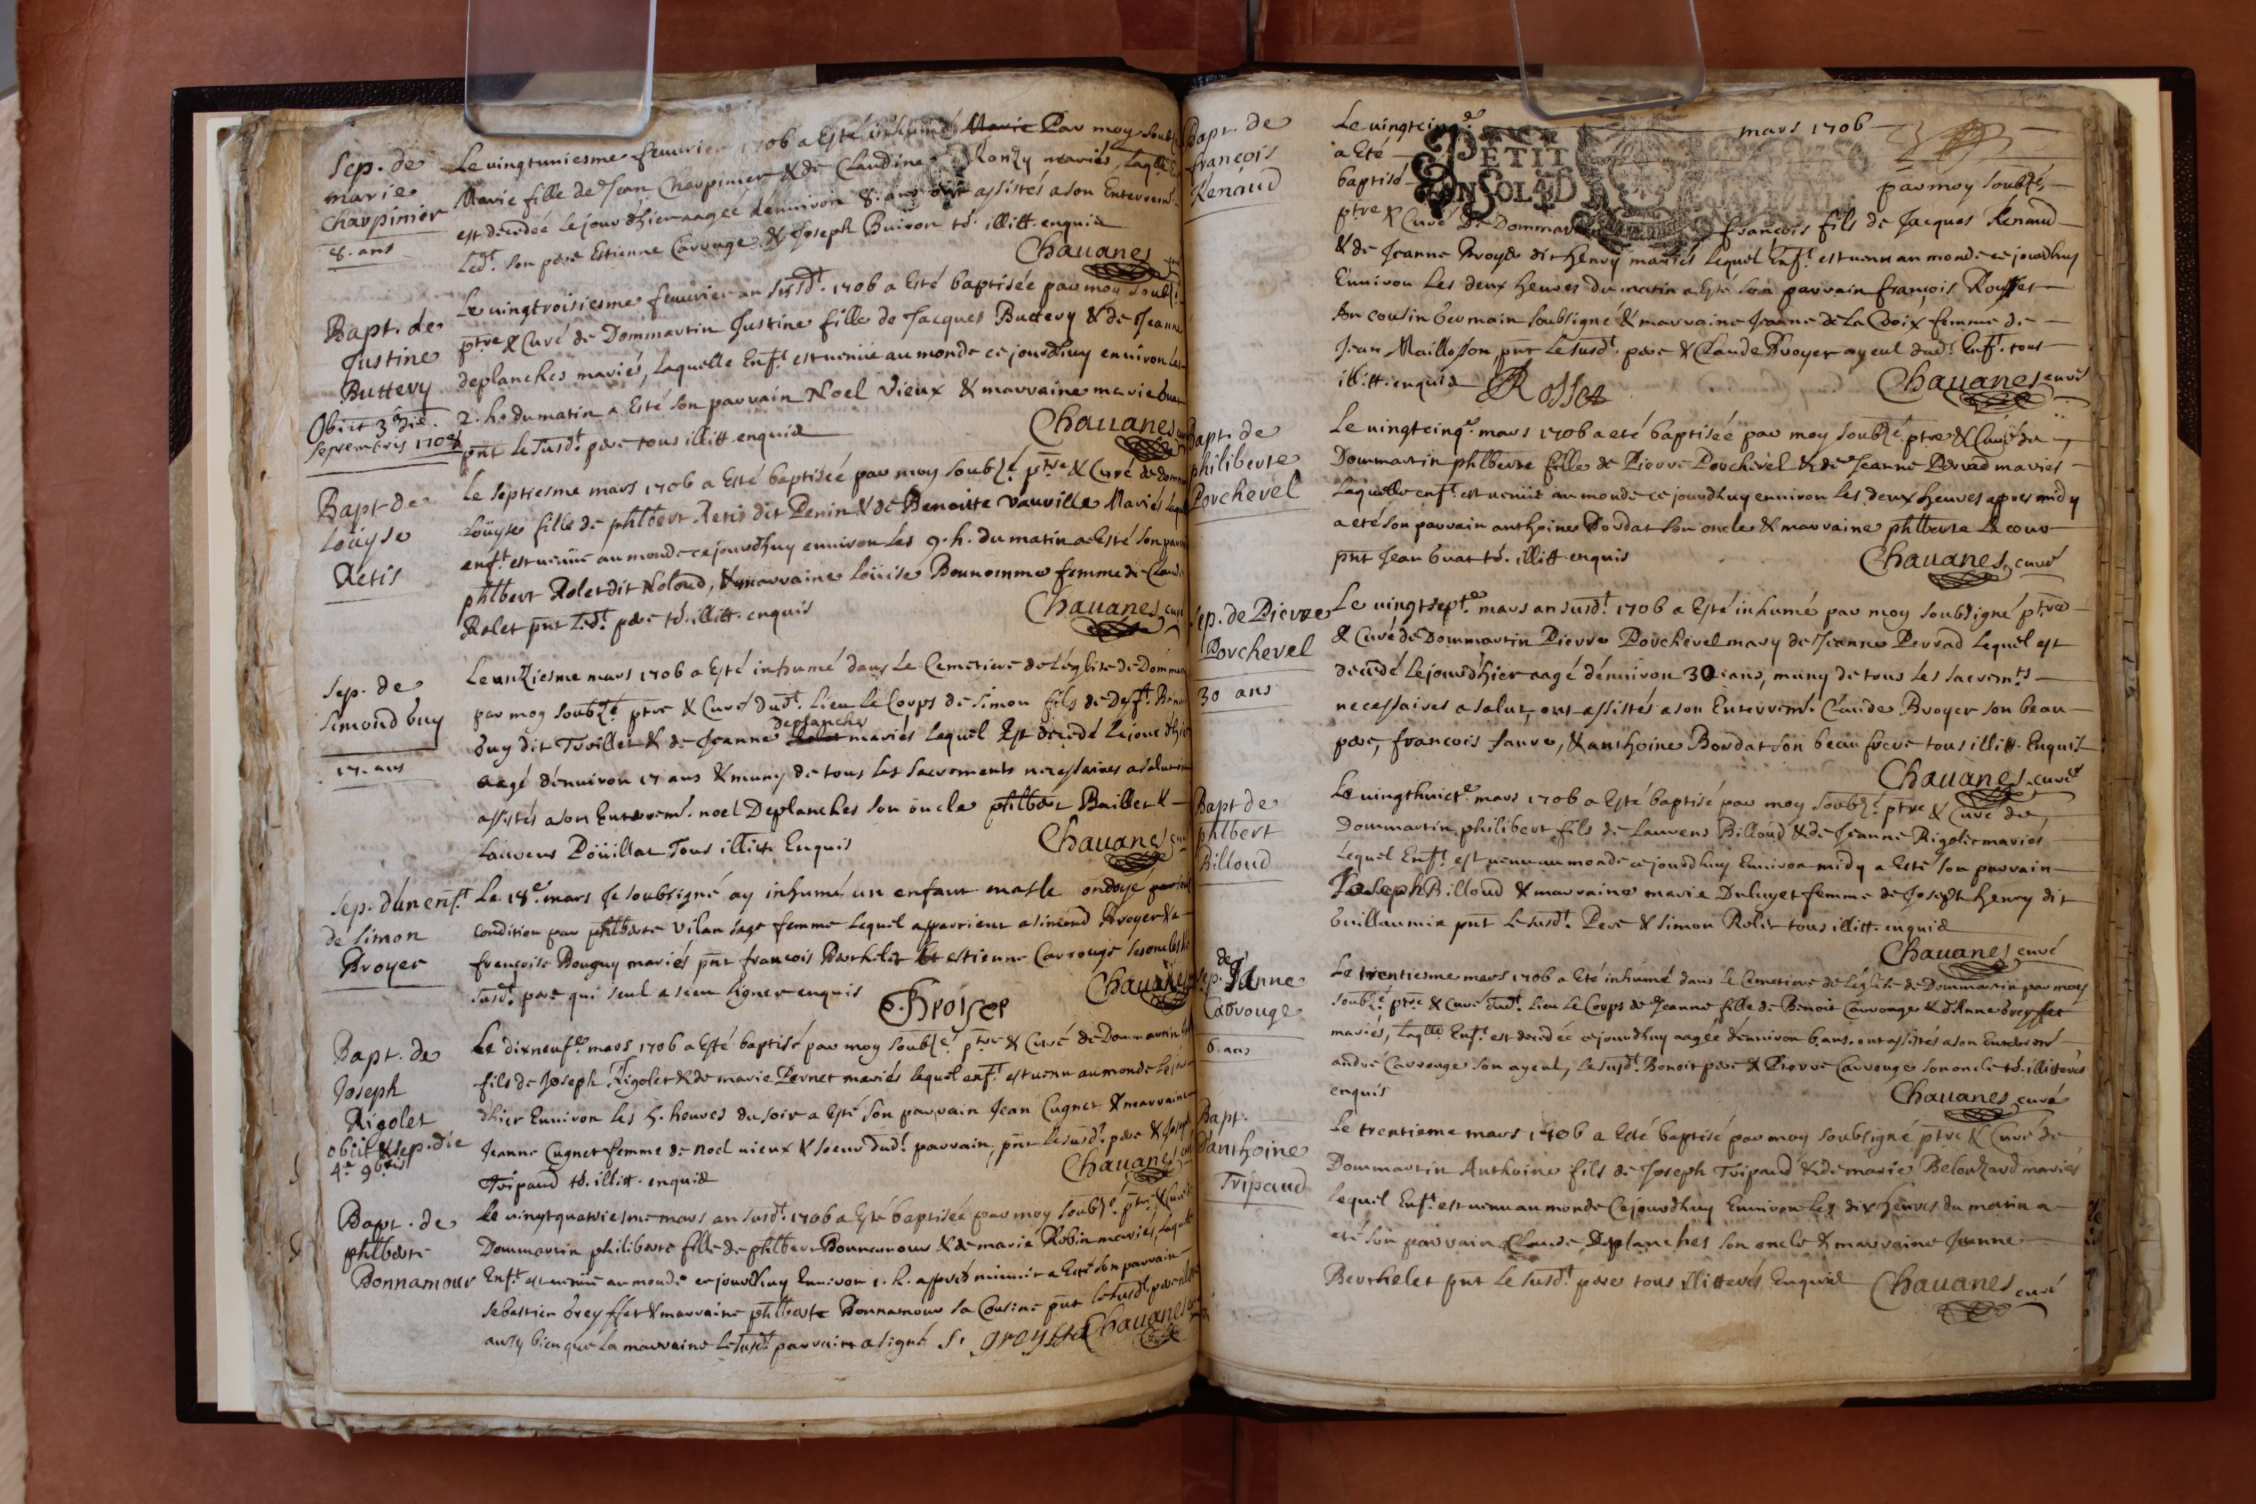 Sep. de
marie
Charpinier
8. ans
Le vingtuniesme feuurier 1706 a Esté inhumé Marie Par moy soub
Marie fille de Jean Charpinier & de Claudine Ronzy mariés, Laqlle
est decedée le jour d'hier aagée d'enuiron 8. ans ont assistés a son Enterrem.t
Led.t son pere Estienne Carrouge & Joseph Buiron ts. illitt. enquis
Chauanes
Bapt. de
Justine
Buttery
Obiit 3a die
septembris 1708
Le vingtroisiesme feuurier an susd.t 1706 a Esté baptisée par moy soub
ptre & Curé de Dommartin Justine fille de Jacques Buttery & de Jeanne
deplanches mariés, Laquelle Enf.t est venüe au monde ce jourdhuy enuiron les
2. h. du matin a Esté son parrain Noel Vieux & marraine marie buat
pnt Le susd.t pere tous illitt. enquis
Chauanes
Bapt. de
Loüyse
Retis
Le septiesme mars 1706 a Esté baptisée par moy soubzé. ptre & Curé de Domm
Loüyse fille de phlbert Retis dit Penin & de Benoiste Vauville Mariés laqu
enf.t est venüe au monde ce jourdhuy enuiron les 9. h. du matin a Esté son par
phlbert Rolet dit Noloud, & marraine Loüise Bonnomme femme de Clau
Rolet pnt L.d.t pere ts. illitt. enquis
Chauanes curé
Sep. de
Simond buy
17. ans
Le unziesme mars 1706 a Esté inhumé dans Le Cemetiere de L'eglise de Domm
par moy soubzé ptre & Curé dud.t Lieu Le Corps de Simon fils de deff.t Ben
buy dit Troillet & de Jeanne Rolet deplanche mariés Lequel Est decedé Le jour d'hier
aagé d'enuiron 17 ans & muny de tous les sacrements necessaires a salut
assistés a son Enterrem.t noel Deplanches son oncle phlbert Baillet &
Laurens Poüillat Tous illitt. Enquis
Chauanes
Sep. d'un enf.t
de Simon
Broyer
Le 18e. mars Je soubsigné ay inhumé un enfant masle ondoyé
condition par phlberte vilan sage femme Lequel appartient a simond Broyer & a
francoise Bouguy mariés pnt francois Berthelet & estienne Carrouge ses oncles
susd.t pere qui seul a sceu signer enquis
S. Broiyer
Chauanes
Bapt. de
Joseph
Rigolet
obiit & sep. die
4a 9bris
Le dixneufe. mars 1706 a Esté baptisé par moy soubzé. ptre & Curé de Dommartin
fils de Joseph Rigolet & de marie Pernet mariés lequel enf.t est venu au monde Le jour
d'hier Enuiron les 5. heures du soir a Esté son parrain Jean Cugnet & marraine
Jeanne Cugnet femme de noel vieux & soeur dud.t parrain, pnt Le susd.t pere & Joseph
Tripaud ts. illitt. enquis
Chauanes
Bapt. de
phlberte
Bonnamour
Le vingtquatriesme mars an susd.t 1706 a Esté baptisée par moy soubzé. ptre & Curé
Dommartin philiberte fille de phlbert Bonnamour & de marie Robin mariés, Laquelle
Enf.t est venüe au monde ce jourdhuy Enuiron 1. h. apprés minuit a Esté son parrain
sebastien Greyffet & marraine phlberte Bonnamour sa Cousine pnt le susd.t pere
aussy bien que La marraine Le susd.t parrain a signé S. greyffet Chauanes
Bapt. de
francois
Renaud
Le vingtcinqe. mars 1706
a Eté
PETIT
EN SOL 4D
baptisé par moy soubzé,
ptre & Curé de Dommartin francois fils de Jacques Renaud
& de Jeanne Broyer dit henry mariés Lequel Enf.t est venu au monde ce jourdhuy
Enuiron Les deux heures du matin a Esté son parrain francois Rosset
son cousin germain soubsigné & marraine Jeanne de La Croix femme de
Jean Maillosson pnt Le susd.t pere & Claude Broyer ayeul dud.t Enf.t tous
illitt. enquis Rosset Chauanes curé
Bapt. de
philiberte
Porchevel
Le vingtcinqe. mars 1706 a eté baptisée par moy soubzé. ptre & Curé de
Dommartin phlberte fille de Pierre Porchevel & de Jeanne Perrad mariés
Laquelle enf.t est venüe au monde ce jourdhuy enuiron Les deux heures apres midy
a eté son parrain anthoine Bordat son oncle & marraine phlberte Lacour
pnt Jean buat ts. illitt. enquis
Chauanes, curé
Sep. de Pierre
Porchevel
30 ans
Le vingtsepte. mars an susd.t 1706 a Esté inhumé par moy soubsigné ptre
& Curé de Dommartin Pierre Porchevel mary de Jeanne Perrad Lequel est
decedé Le jourd'hier aagé d'enuiron 30. ans, muny de tous les sacrem.ts
necessaires a salut, ont assistés a son Enterrem.t Claude Broyer son beau
pere, francois faure, & anthoine Bordat son beau frere tous illitt. Enquis
Chauanes, curé
Bapt. de
phlbert
Billoud
Le vingthuicte. mars 1706 a Esté baptisé par moy soubzé. ptre & Curé de
Dommartin philibert fils de Laurens Billoud & de Jeanne Rigolet mariés
Lequel Enf.t est venu au monde ce jourdhuy Enuiron midy a Esté son parrain
Joseph Billoud & marraine marie Duluyet femme de Joseph henry dit
Guillaumix pnt Le susd.t Pere & Simon Rolet tous illitt. enquis
Chauanes, curé
Sep. de Janne
Carrouge
6. ans
Le trentiesme mars 1706 a Eté inhumé dans Le Cemetiere de L'eglise de Dommartin par moy
soubzé. ptre & Curé dud.t Lieu Le Corps de Jeanne fille de Benoit Carrouge & d'Anne Greyffet
mariés, Laqlle Enf.t est decedée ce jourdhuy aagée d'enuiron 6. ans. ont assistés a son Enterrem.t
andré Carrouge son ayeul, Le susd.t Benoit pere & Pierre Carrouge son oncle ts. illiterés
enquis
Chauanes, curé
Bapt.
d'anthoine
Tripaud
Le trentieme mars 1706 a Eté baptisé par moy soubsigné ptre & Curé de
Dommartin Anthoine fils de Joseph Tripaud & de marie Belouzard mariés
Lequel Enf.t est venu au monde Ce jourdhuy Enuiron Les dix heures du matin a
eté son parrain Claude Deplanches son oncle & marraine Jeanne
Berthelet pnt Le susd.t pere tous illitterés Enquis Chauanes curé